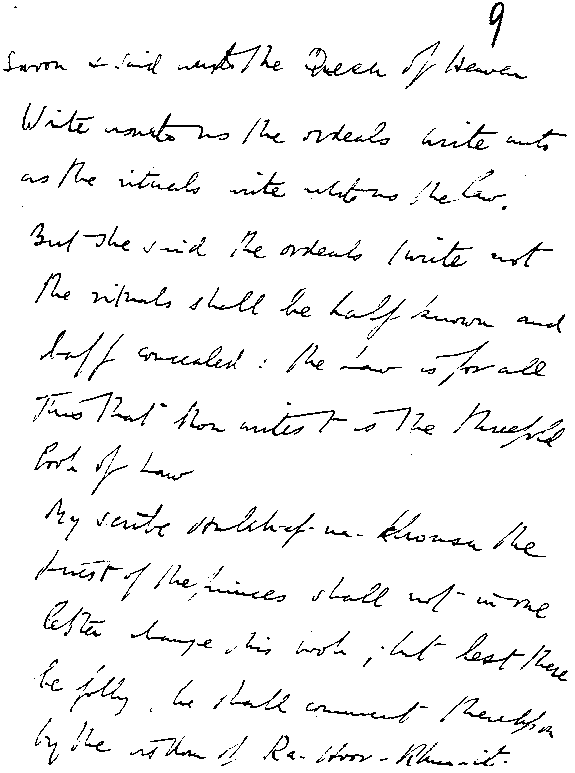 9
swoon & said unto the Queen of Heaven
Write unto us the ordeals write unto
us the rituals write unto us the law.
But she said the ordeals I write not
the rituals shall be half known and
half concealed : the Law is for all
This that thou writest is the threefold
book of Law
My scribe Ankh-af-na-khonsu the
priest of the princes shall not in one
letter change this book ; but lest there
be folly, he shall comment thereupon
by the wisdom of Ra-Hoor-Khu-it.